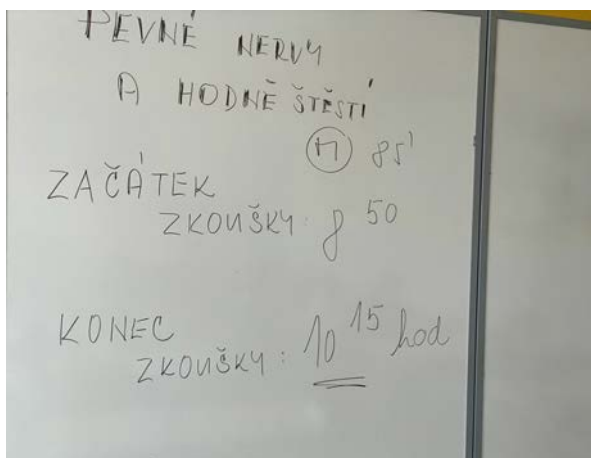 PEVNÉ NERVY
A HODNĚ ŠTĚSTÍ
M 85'
ZAČÁTEK
ZKOUŠKY: 8 50
KONEC
ZKOUŠKY: 10 15 hod